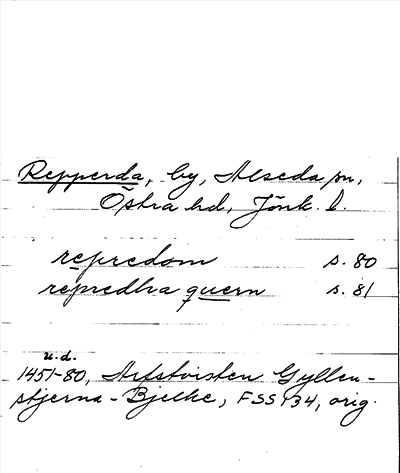 Repperda, by, Alseda sn,
Östra hd, Jönk. l.
repredom s. 80
repredha quern s. 81
u.d.
1451-80, Arfstvisten Gyllen-
stjerna - Bjelke, FSS 134, orig.